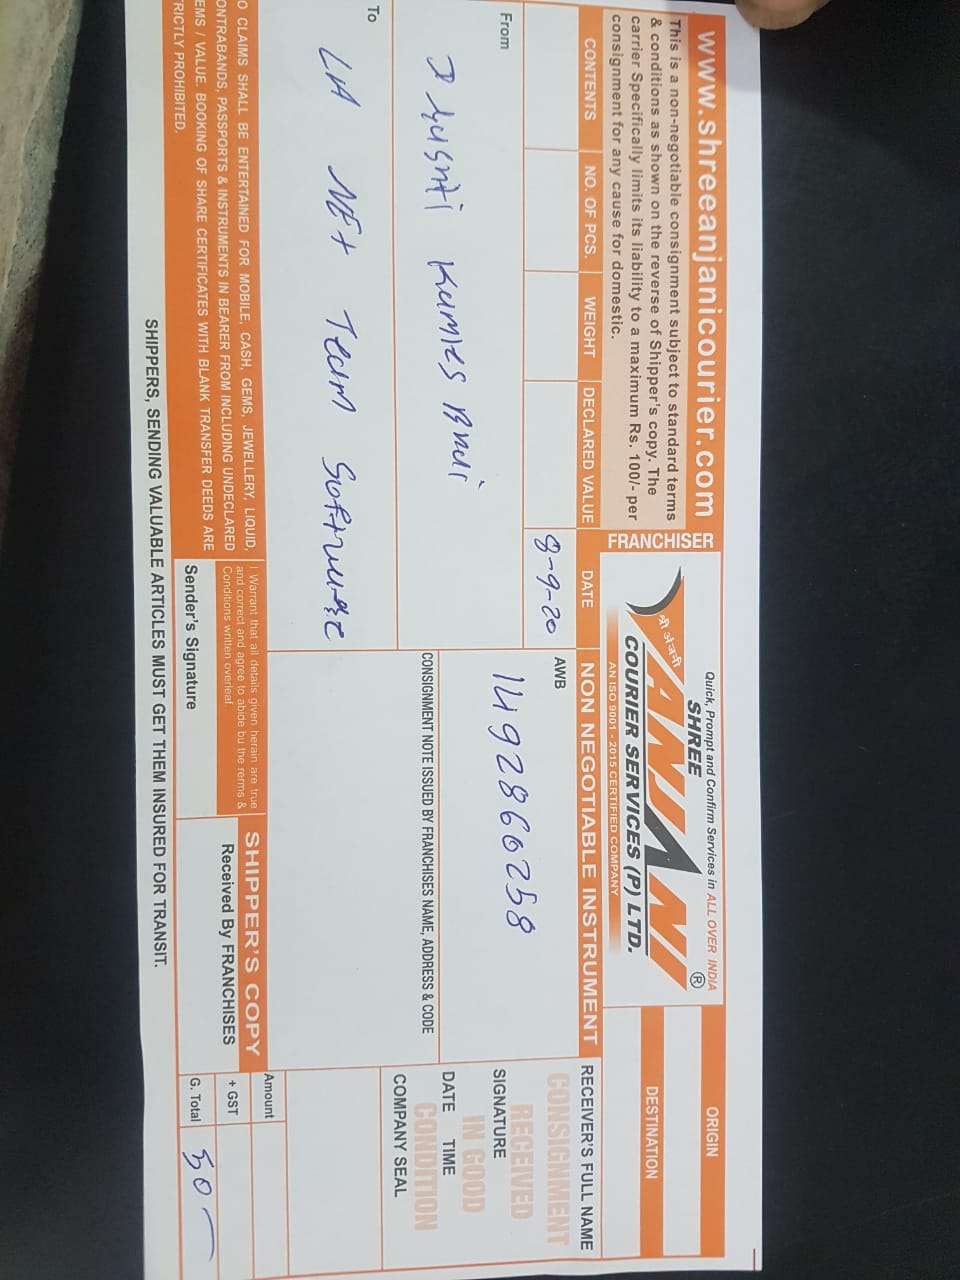 www.shreeanjanicourier.com
This is a non-negotiable consignment subject to standard terms
& conditions as shown on the reverse of Shipper's copy. The
carrier Specifically limits its liability to a maximum Rs. 100/- per
consignment for any cause for domestic.
FRANCHISER
Quick, Prompt and Confirm Services in ALL OVER INDIA
SHREE
श्री अंजनी
ANJANI ®
COURIER SERVICES (P) LTD.
AN ISO 9001 - 2015 CERTIFIED COMPANY
ORIGIN
DESTINATION
CONTENTS NO. OF PCS. WEIGHT DECLARED VALUE DATE
8-9-20
NON NEGOTIABLE INSTRUMENT
AWB
1492860258
RECEIVER'S FULL NAME
CONSIGNMENT
RECEIVED
SIGNATURE
IN GOOD
DATE TIME
CONDITION
COMPANY SEAL
From
To
NET Team Software
CONSIGNMENT NOTE ISSUED BY FRANCHISES NAME, ADDRESS & CODE
O CLAIMS SHALL BE ENTERTAINED FOR MOBILE, CASH, GEMS, JEWELLERY, LIQUID,
ONTRABANDS, PASSPORTS & INSTRUMENTS IN BEARER FROM INCLUDING UNDECLARED
EMS / VALUE. BOOKING OF SHARE CERTIFICATES WITH BLANK TRANSFER DEEDS ARE
TRICTLY PROHIBITED.
I Warrant that all details given herain are true
and correct and agree to abide bu the rerms &
Conditions written overleaf.
Sender's Signature
SHIPPER'S COPY
Received By FRANCHISES
Amount
+ GST
G. Total 50
SHIPPERS, SENDING VALUABLE ARTICLES MUST GET THEM INSURED FOR TRANSIT.